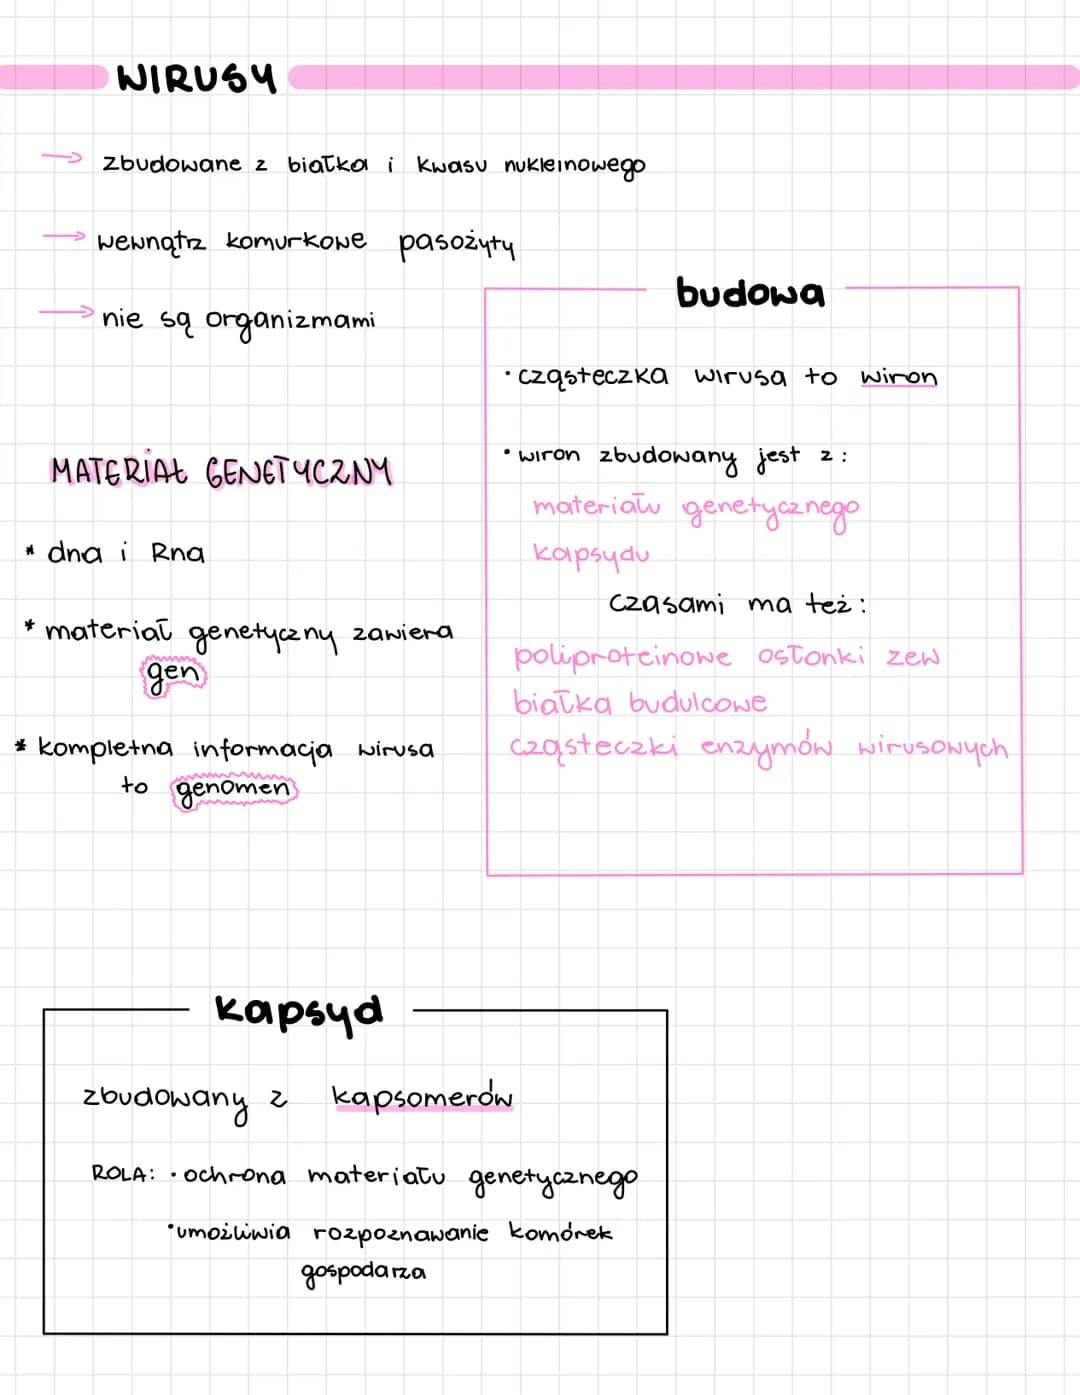 WIRUSY
zbudowane z białka i kwasu nukleinowego
wewnątrz komurkowe pasożyty
nie są organizmami
budowa
• cząsteczka wirusa to wiron
• wiron zbudowany jest z:
materiału genetycznego
kapsydu
czasami ma też:
poliproteinowe osłonki zew
białka budulcowe
cząsteczki enzymów wirusowych
MATERIAŁ GENETYCZNY
* dna i Rna
* materiał genetyczny zawiera
gen
* kompletna informacja wirusa
to genomen
kapsyd
zbudowany z kapsomerów
ROLA: • ochrona materiału genetycznego
• umożliwia rozpoznawanie komórek
gospodarza